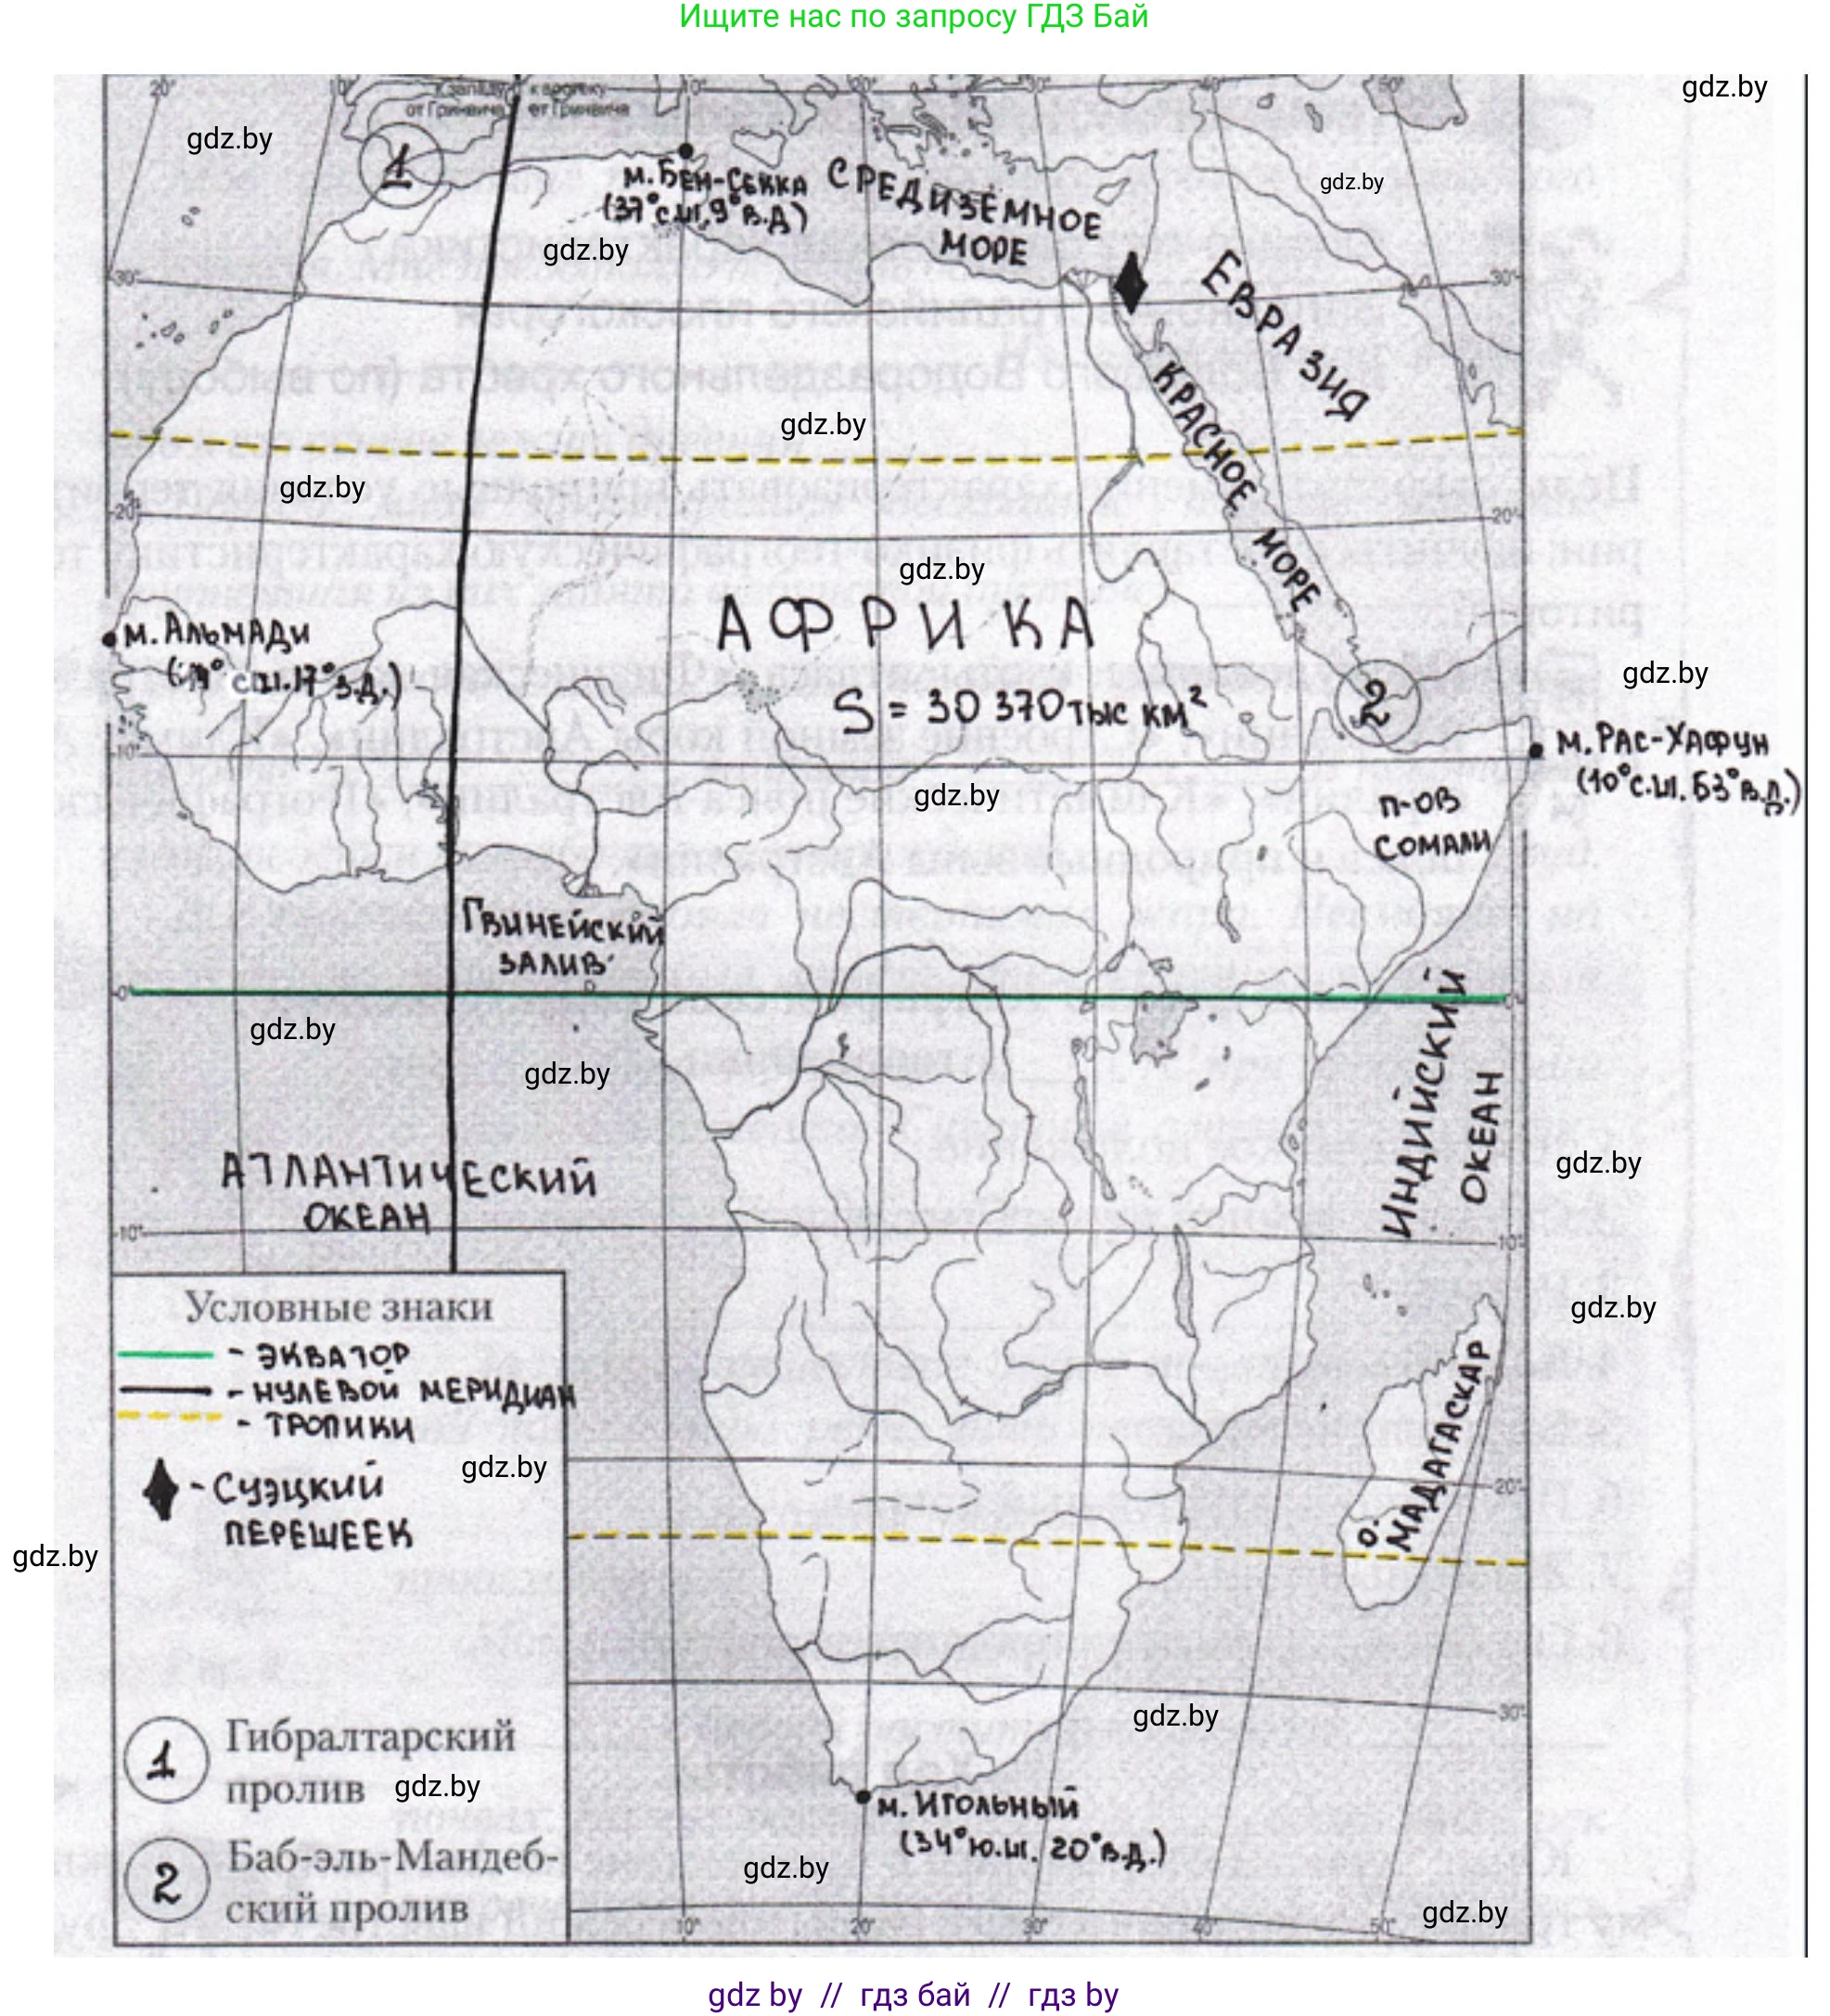 Ищите нас по запросу ГДЗ Бай
20° 10° 10° 20° 30° 40° 50°
к западу к востоку
от Гринвича от Гринвича
gdz.by
gdz.by
1
м. Бен-Секка
(37° с.ш. 9° в.д)
СРЕДИЗЕМНОЕ
МОРЕ
gdz.by
gdz.by
ЕВРАЗИЯ
30° 30°
КРАСНОЕ МОРЕ
gdz.by
gdz.by
20° 20°
gdz.by
АФРИКА
м. Альмади
с.ш. 17° з.д.)
S = 30 370 тыс км²
2
gdz.by
м. Рас-Хафун
(10° с.ш. 53° в.д.)
10°
gdz.by
п-ов
Сомали
Гвинейский
залив
0° 0°
gdz.by
gdz.by
ИНДИЙСКИЙ
ОКЕАН
АТЛАНТИЧЕСКИЙ
ОКЕАН
gdz.by
10° 10°
Условные знаки
- ЭКВАТОР
- НУЛЕВОЙ МЕРИДИАН
- ТРОПИКИ
- СУЭЦКИЙ
ПЕРЕШЕЕК
gdz.by
gdz.by
gdz.by
о. МАДАГАСКАР
20°
30°
gdz.by
1 Гибралтарский
пролив
gdz.by
2 Баб-эль-Мандеб-
ский пролив
м. Игольный
(34° ю.ш. 20° в.д.)
gdz.by
gdz.by
10° 20° 30° 40° 50°
gdz by // гдз бай // гдз by